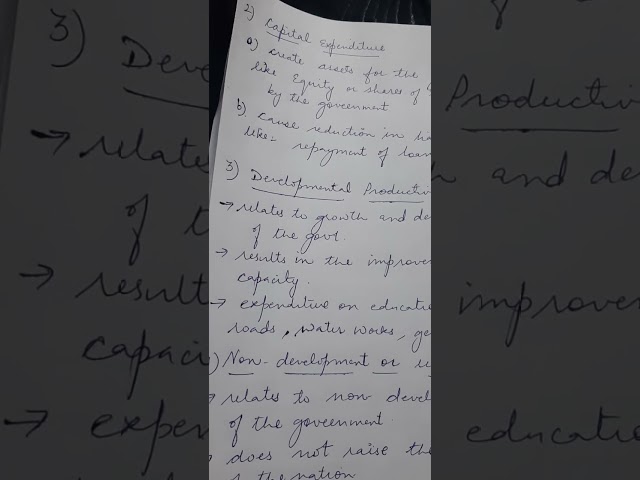 2) Capital Expenditure
a) create assets for the
like Equity or shares of
by the government
b) cause reduction in
like- repayment of loan
3) Developmental Productiv
→ relates to growth and de
of the govt.
→ results in the improve
capacity.
→ expenditure on educati
roads, water works, ge
) Non-development or
→ relates to non devel
of the government.
does not raise the
the nation